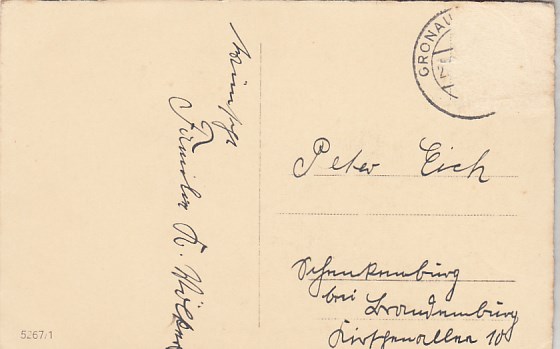 wünscht
Familie K. Wölker
GRONAU
Peter Eich
Schenkenburg
bei Brandenburg
Kirschenallee 10
5267/1